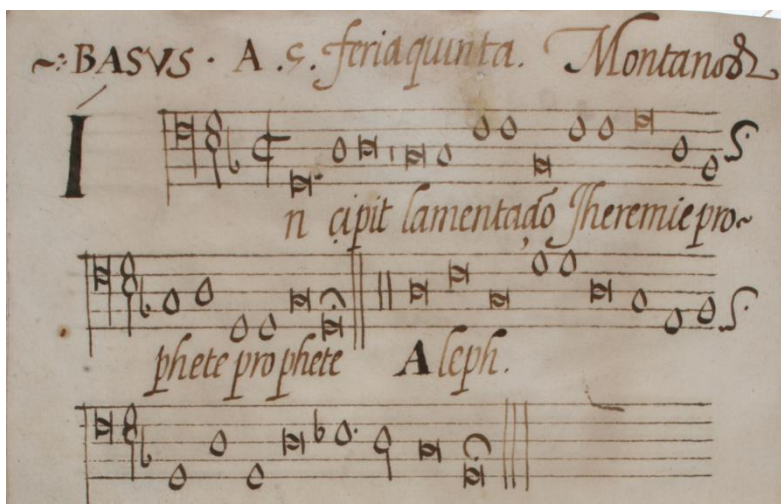 BASVS · A .5. feria quinta. Montanos
In cipit lamentaçio Jheremie pro~
phete pro phete Aleph.